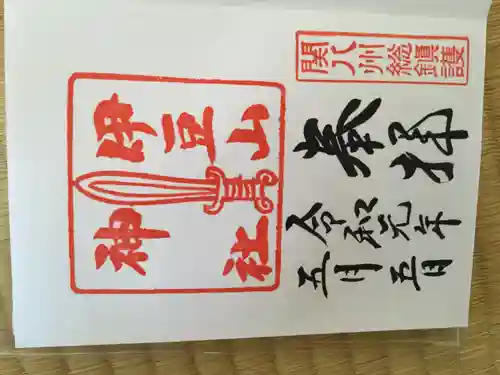 関八州総鎮護
奉拝
令和元年
五月五日
伊豆山
神社